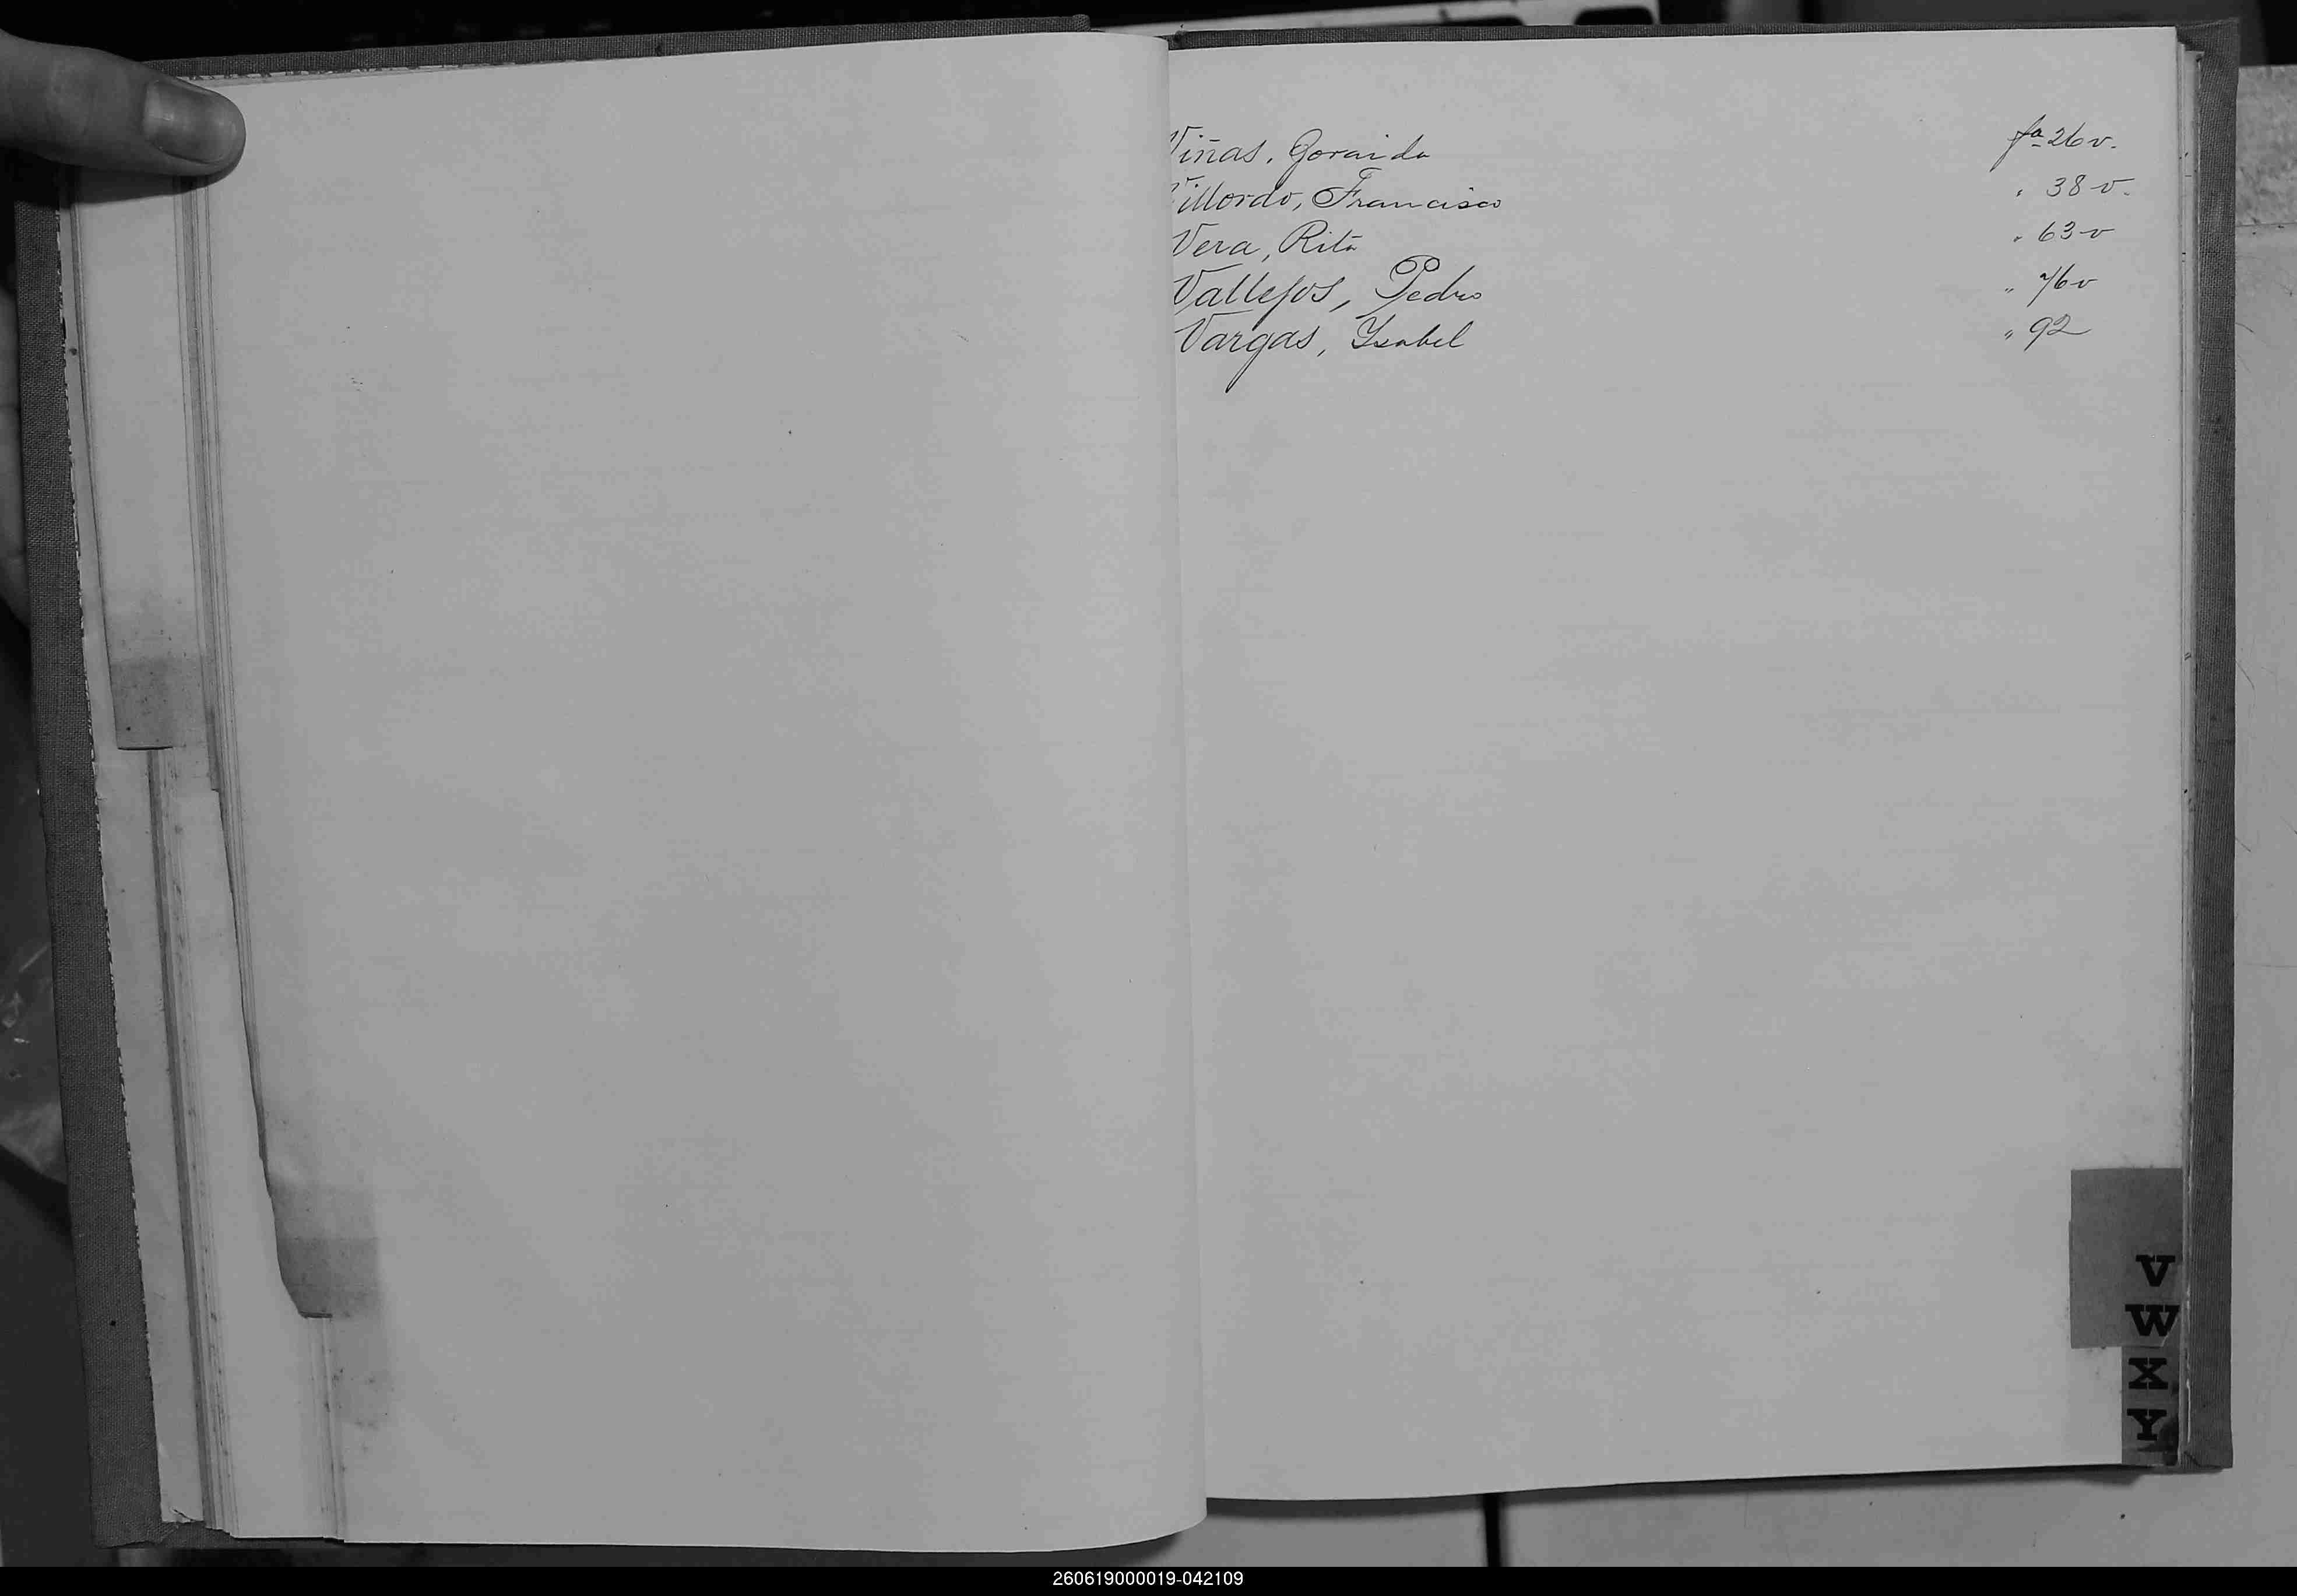 Viñas, Goraida fª 26 v.
Villordo, Francisco " 38 v.
Vera, Rita " 63 v
Vallejos, Pedro " 76 v
Vargas, Ysabel " 92
V
W
X
Y
260619000019-042109